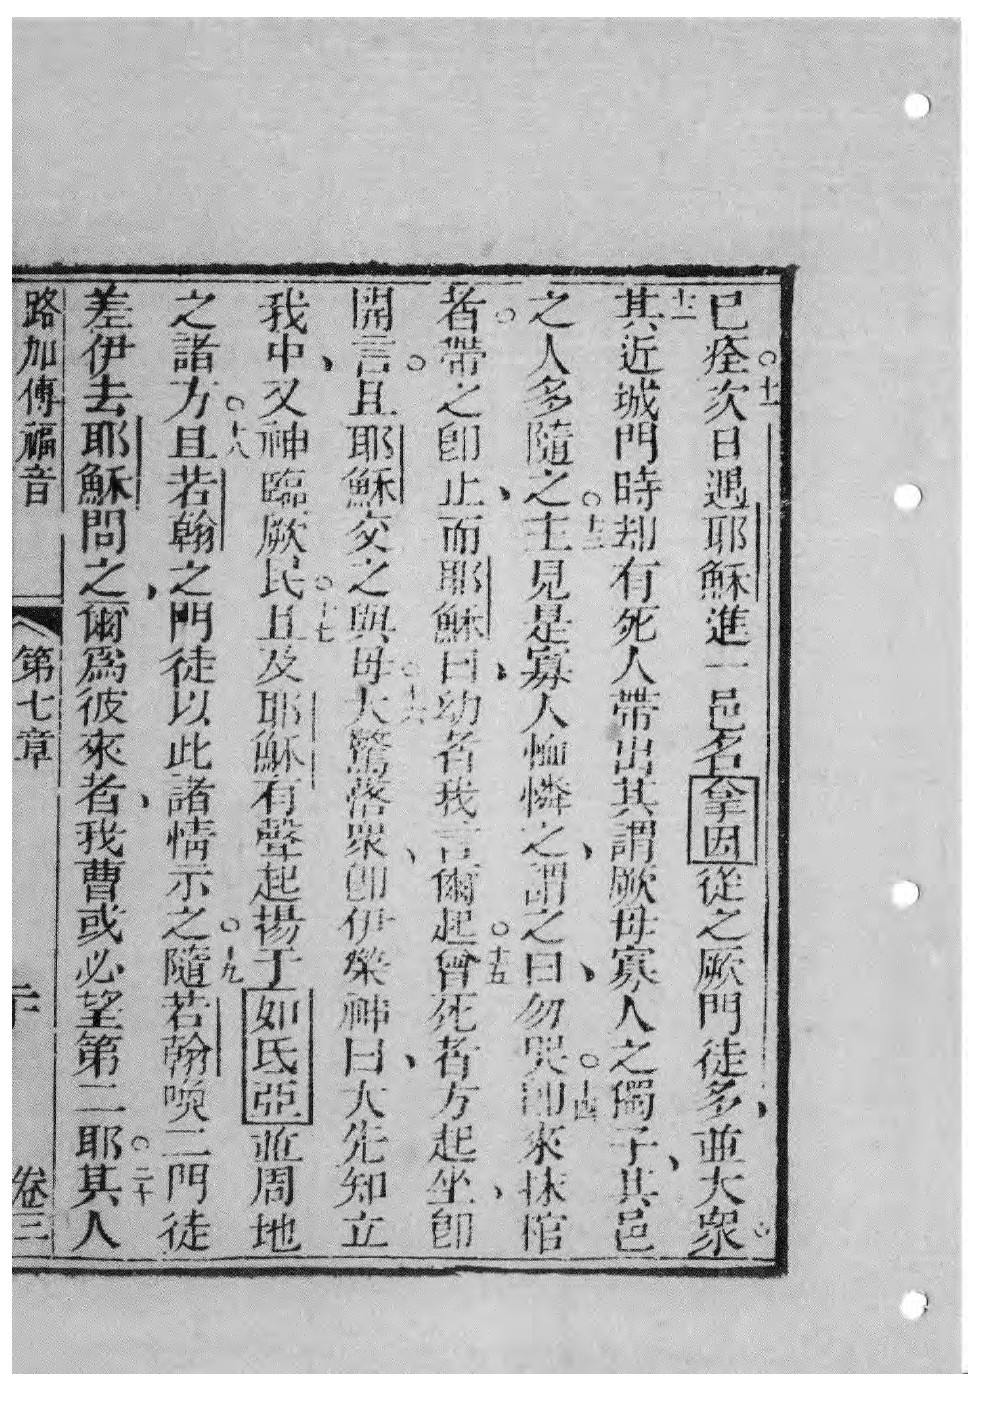 已痊○十一次日遇耶穌進一邑名拿因從之厥門徒多、並大衆○
十二其近城門時却有死人帶出其謂厥母寡人之獨子、其邑
之人多隨之○十三主見是寡人恤憐之、謂之曰、勿哭○十四卽來抹棺
者○帶之卽止、而耶穌曰、幼者我言爾起○十五曾死者方起坐、卽
開言○且耶穌交之與母○十六大驚落衆、卽伊榮神曰、大先知立
我中、又神臨厥民○十七且及耶穌有聲起揚于如氐亞並周地
之諸方○十八且若翰之門徒以此諸情示之○十九隨若翰喚二門徒
差伊去耶穌問之、爾爲彼來者、我曹或必望第二耶○二十其人
路加傳福音 第七章 卷三